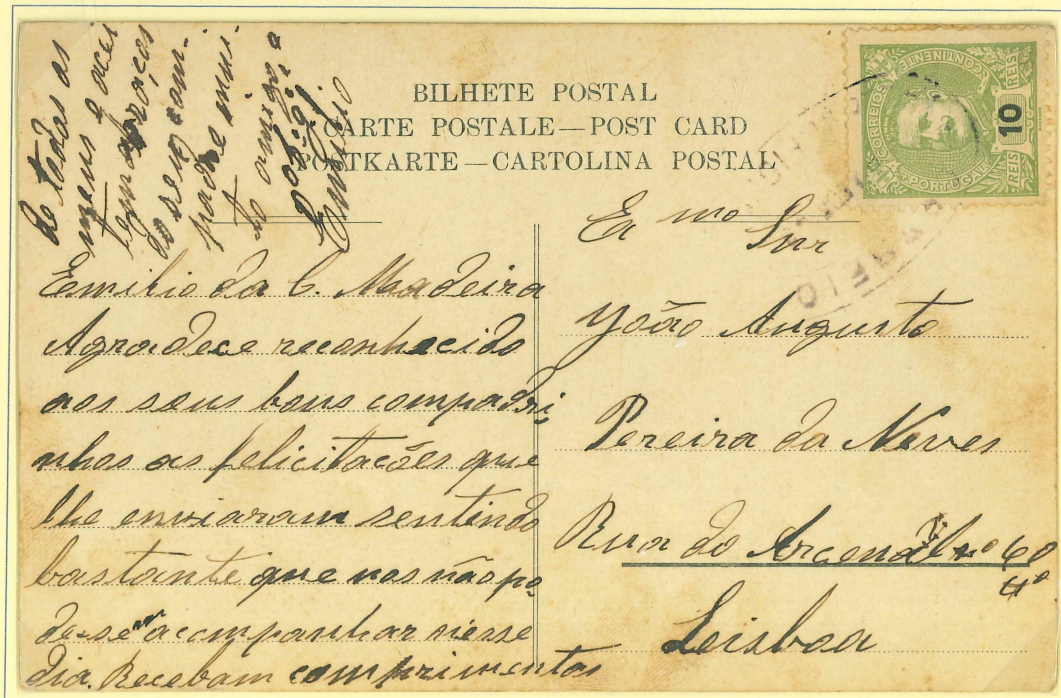 BILHETE POSTAL
CARTE POSTALE—POST CARD
POSTKARTE—CARTOLINA POSTAL
CORREIOS
CONTINENTE
PORTUGAL
10
REIS
REIS
Emilio da C. Madeira
Agradece reconhecido
aos seus bons compadri-
nhos as felicitações que
lhe enviaram sentindo
bastante que nos não po-
de-se acompanhar nesse
dia. Recebam comprimentos
de todas as
abraços
do seu com-
padre mui-
to amigo e
Emilio
Ex mo Snr
João Augusto
Pereira da Neves
Rua do Arcenal nº 60
4º
Leisboa